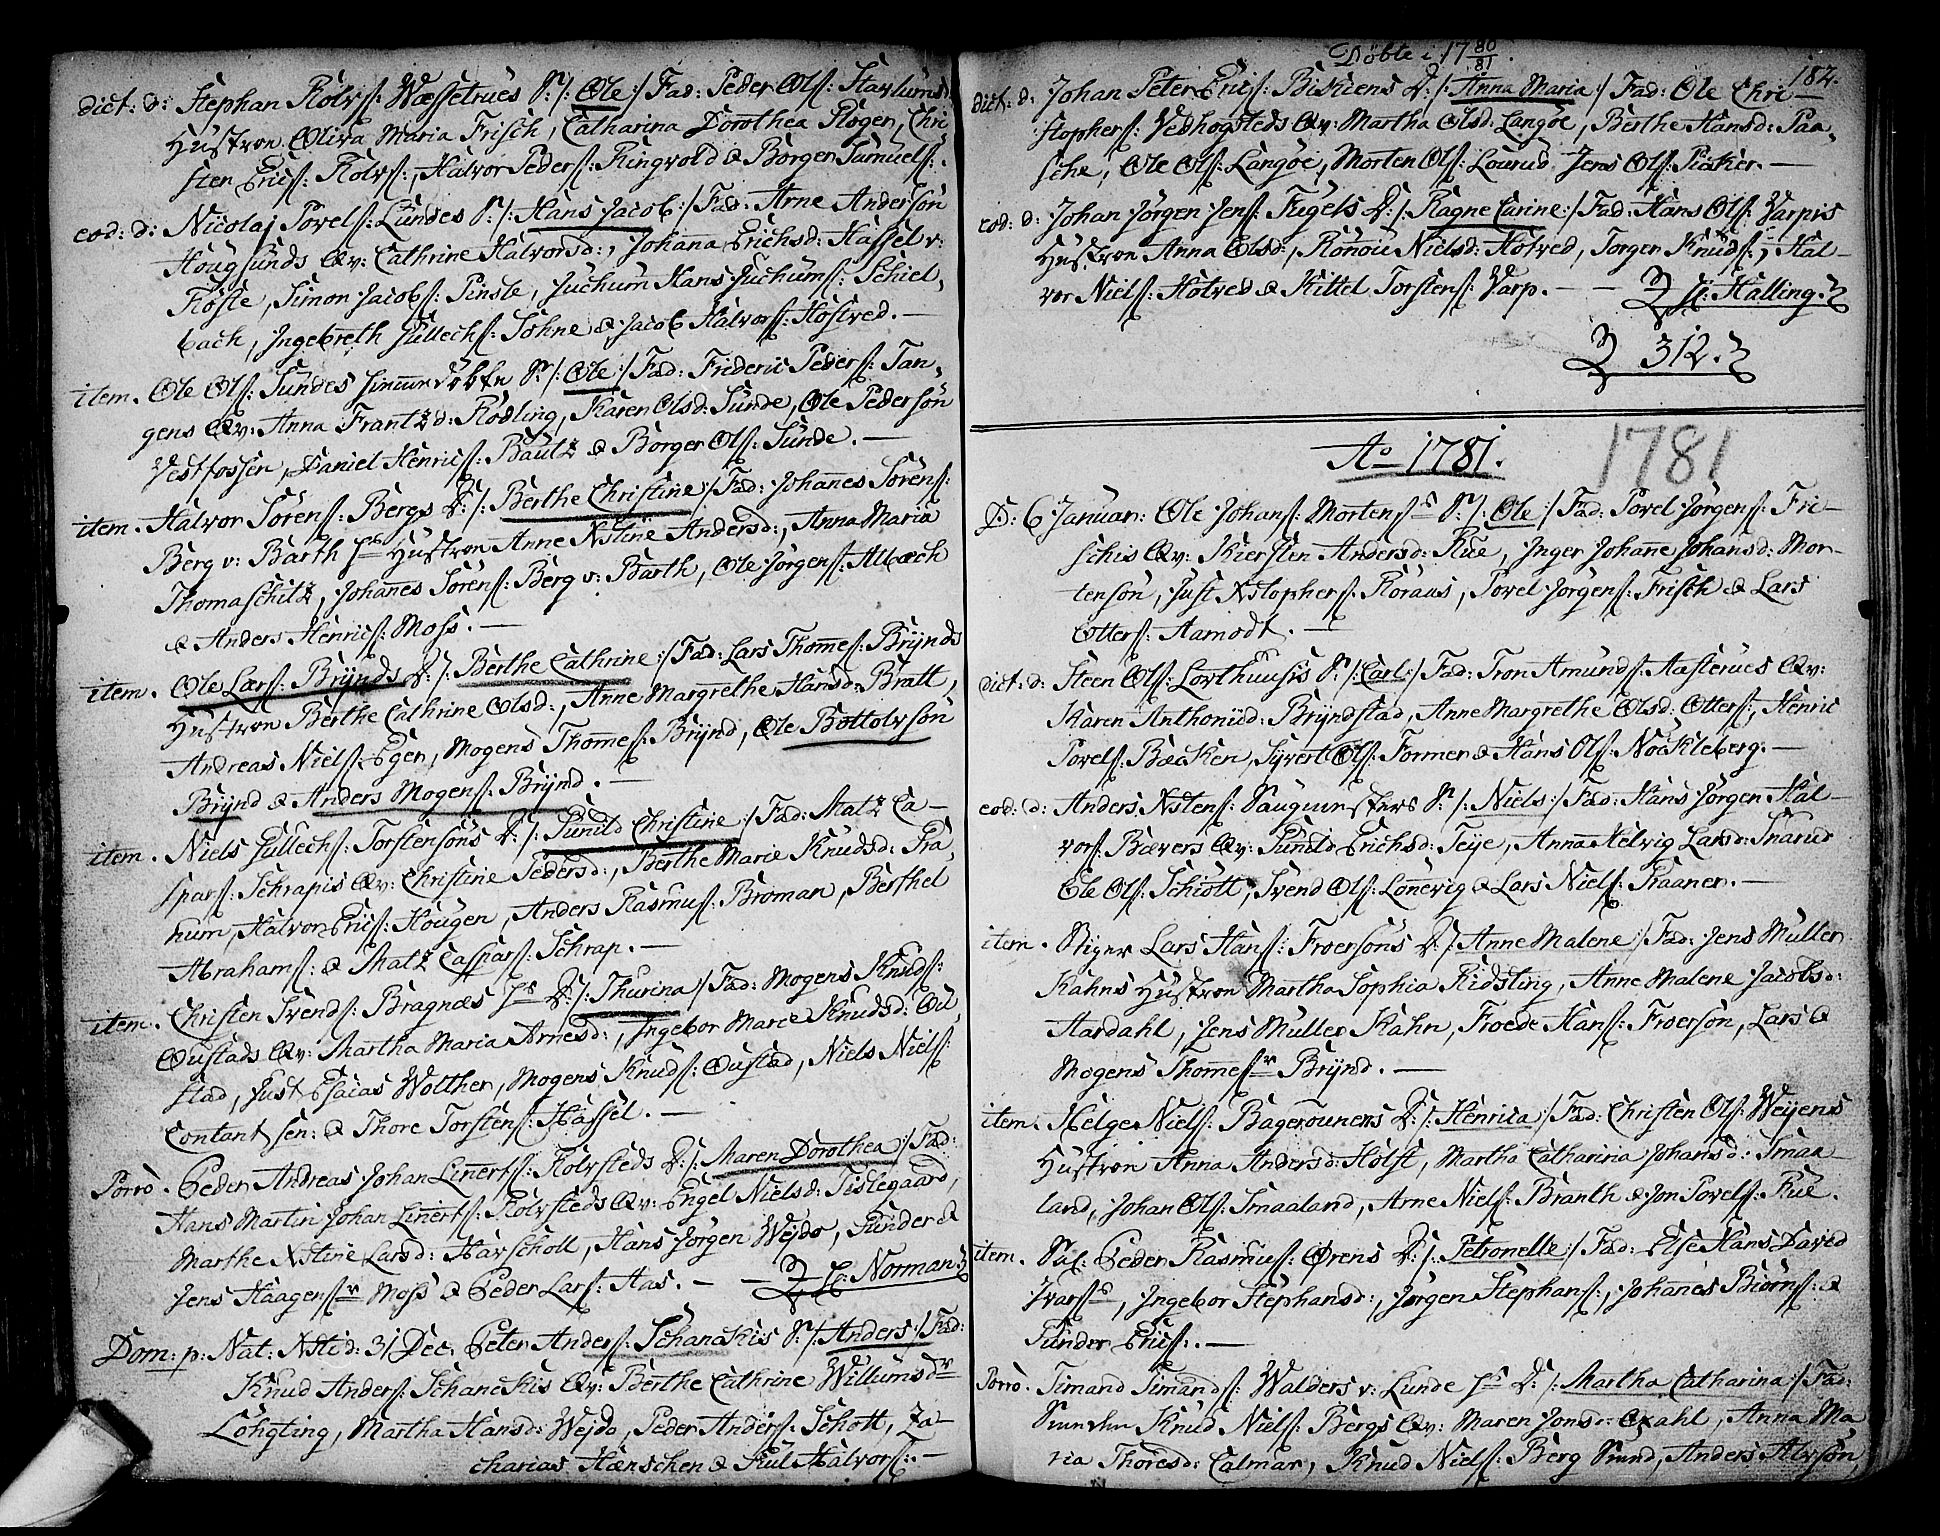 dict: d: Stephan Rolvs: Wæssetrues S: /: Ole :/ Fad: Peder Ols: Stavlums
Hustroe Oliva Maria Frisch, Catharina Dorothea Ploger, Chri
sten Erics: Rolvs:, Halvor Peders: Ringvold & Borger Samuels:.
eod: d: Nicolaj Povels: Lundes S: /: Hans Jacob :/ Fad: Arne Anderson
Hougsunds Qv: Cathrine Halvorsd:, Johana Erichsd: Hassel v:
Foste, Simon Jacobs: Tinsle, Juchum Hans Juchums: Schiel,
bach, Ingebreth Gullechs: Sohne & Jacob Halvors: Hostved. —
item. Ole Ols: Sundes S: /: Ole :/ Fad: Frideric Peders: Tan,
gens Qv: Anna Frantz d: Rodling, Karen Olsd: Sunde, Ole Pederson
Vestfossen, Daniel Henrics: Bautz & Borger Ols: Sunde. —
item. Halvor Sorens: Bergs D: /: Berthe Christine :/ Fad: Johanes Sorens:
Berg v: Barth Hustroe Anne Xstine Andersd:, Anna Maria
Thomaschitz, Johanes Sorens: Berg v: Barth, Ole Jorgens: Albech
& Anders Henrics: Moss. —
item. Ole Lars: Brynds D: /: Berthe Cathrine :/ Fad: Lars Thomes: Brynds
Hustroe Berthe Cathrine Olsd:, Anne Margrethe Hansd: Bratt,
Andreas Niels: Egen, Mogens Thomes: Brynd, Ole Bottolvson
Brynd & Anders Mogens: Brynd. —
item. Niels Gullechs: Torstensons D: /: Gunild Christine :/ Fad: Matz Ca-
spars: Schrapis Qv: Christine Pedersd:, Berthe Marie Knudsd: Fra,
hum, Halvor Erics: Hougen, Anders Rasmus: Broman, Berthel
Abrahams: & Matz Caspars: Schrap. —
item. Christen Svends: Bragnæs D: /: Thurina :/ Fad: Mogens Knuds:
Oustads Qv: Martha Maria Arnesd:, Ingebor Marie Knudsd: Ou,
stad, Just Esaias Wolther, Mogens Knuds: Oustad, Niels Niels:
Contantsen: & Thore Torstens: Hassel. —
Porro. Peder Andreas Johan Linerts: Rolvsteds D: /: Maren Dorothea :/ Fad:
Hans Martin Johan Linerts: Rolvsteds Qv: Engel Nielsd: Tislegaard,
Marthe Xstine Larsd: Harscholl, Hans Jorgen Wejdo, Gunder &
Jens Haagens: Moss & Peder Lars: Aas. — — H: Norman.
Dom: p: Nat: Xsti d: 31 Dec: Peter Anders: Schanckis S: /: Anders :/ Fad:
Knud Anders: Schanckis Qv: Berthe Cathrine Willumsd:
Lohgting, Martha Hansd: Wejdo, Peder Anders: Schott, Za-
charias Hænschen & Kul Halvors:. —

Döbte i 17 80/81.
182.
dict: d: Johan Peter Erics: D: /: Anna Maria :/ Fad: Ole Chri-
stophers: Vedhogsteds Qv: Martha Olsd: Langöe, Berthe Hansd: Paa-
sche, Ole Ols: Langöe, Morten Ols: Lourud Jens Ols: Pisker. —
eod: d: Johan Jörgen Jens: Fugels D: /: Ragne Carine :/ Fad: Hans Ols: Varpis
Hustroe Anna Olsd:, Rönou Nielsd: Hotved, Torger Knuds:, Hal-
vor Niels: Hotved & Kittel Torstens: Varp. — — H: Halling.
312.
Ao 1781.
1781
D: 6 Januar: Ole Johans: Mortens: S: /: Ole :/ Fad: Povel Jörgens: Fri-
schis Qv: Kiersten Andersd: Rue, Inger Johane Johansd: Mor-
tenson, Just Xstophers: Röraus, Povel Jörgens: Frisch & Lars
Otters: Aamodt. —
dict: d: Steen Ols: Lorthuusis S: /: Carl :/ Fad: Tron Amunds: Aasterues Qv:
Karen Anthoniid: Bryndstad, Anne Margrethe Olsd: Otters:, Henric
Povels: Bæcken, Syvert Ols: Former & Hans Ols: Nockleberg. —
eod: d: Anders Xstens: Saugmesters S: /: Niels :/ Fad: Hans Jörgen Hal-
vors: Bævers Qv: Gunild Erichsd: Teye, Anna Helvig Larsd: Snarud
Ole Ols: Schiött, Svend Ols: Lönevig & Lars Niels: Kraaner. —
item. Lars Hans: Froersöns D: /: Anne Malene :/ Fad: Jens Muller
Kahns Hustroe Martha Sophia Ridsting, Anne Malene Jacobsd:
Aardahl, Jens Muller Kahn, Froede Hans: Froerson, Lars &
Mogens Thomes: Brynd. —
item. Helge Niels: Bagerouners D: /: Henrica :/ Fad: Christen Ols: Weyens
Hustroe Anna Andersd: Holst, Martha Catharina Johansd: Smaa-
land, Johan Ols: Smaaland, Arne Niels: Branth & Jon Povels: Rue.
item. Sal: Peder Rasmus: Ørens D: /: Petronelle :/ Fad: Else Hans David
Ivars:, Ingebor Stephansd:, Jörgen Stephans:, Johanes Biorns: &
Gunder Erics:. —
Porro. Simand Simands: Walders v: Lunde D: /: Martha Catharina :/ Fad:
Knud Niels: Bergs Qv: Maren Jonsd: Opdahl, Anna Ma
ria Thoresd: Calmar, Knud Niels: Berg, Anders Alvson,